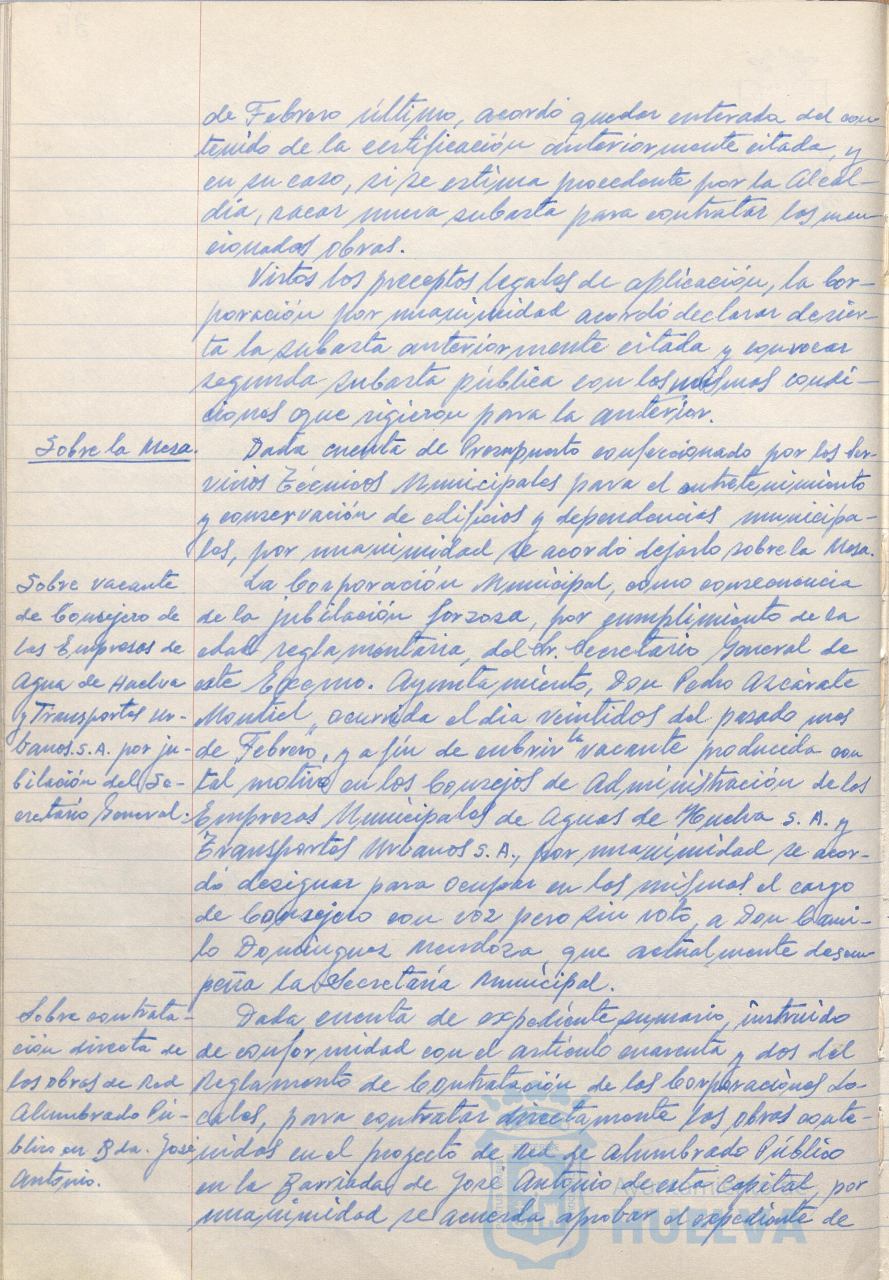 de Febrero último, acordó quedar enterada del con-
tenido de la certificación anteriormente citada, y
en su caso, si se estima procedente por la Alcal-
día, sacar nueva subasta para contratar las men-
cionadas obras.
Vistos los preceptos legales de aplicación, la Cor-
poración por unanimidad acordó declarar desier-
ta la subasta anteriormente citada y convocar
segunda subasta pública con las mismas condi-
ciones que rigieron para la anterior.
Sobre la Mesa.
Dada cuenta de Presupuesto confeccionado por los Ser-
vicios Técnicos Municipales para el entretenimiento
y conservación de edificios y dependencias municipa-
les, por unanimidad se acordó dejarlo sobre la Mesa.
Sobre vacante
de Consejero de
las Empresas de
Agua de Huelva
y Transportes Ur-
banos. S.A. por ju-
bilación del Se-
cretario General.
La Corporación Municipal, como consecuencia
de la jubilación forzosa, por cumplimiento de la
edad reglamentaria, del Sr. Secretario General de
este Excmo. Ayuntamiento, Don Pedro Azcárate
Montiel, ocurrida el día veintidos del pasado mes
de Febrero, y a fín de cubrir la vacante producida con
tal motivo en los Consejos de Administración de las
Empresas Municipales de Aguas de Huelva S. A. y
Transportes Urbanos S. A., por unanimidad se acor-
dó designar para ocupar en las mismas el cargo
de Consejero con voz pero sin voto, a Don Cami-
lo Domínguez Mendoza, que actualmente desem-
peña la Secretaría Municipal.
Sobre contrata-
ción directa de
las obras de Red
Alumbrado Pú-
blico en Bda. José
Antonio.
Dada cuenta de expediente sumario, instruido
de conformidad con el artículo cuarenta y dos del
Reglamento de Contratación de las Corporaciones Lo-
cales, para contratar directamente las obras conte-
nidas en el proyecto de Red de Alumbrado Público
en la Barriada de José Antonio de esta capital, por
unanimidad se acuerda aprobar el expediente de
HUELVA